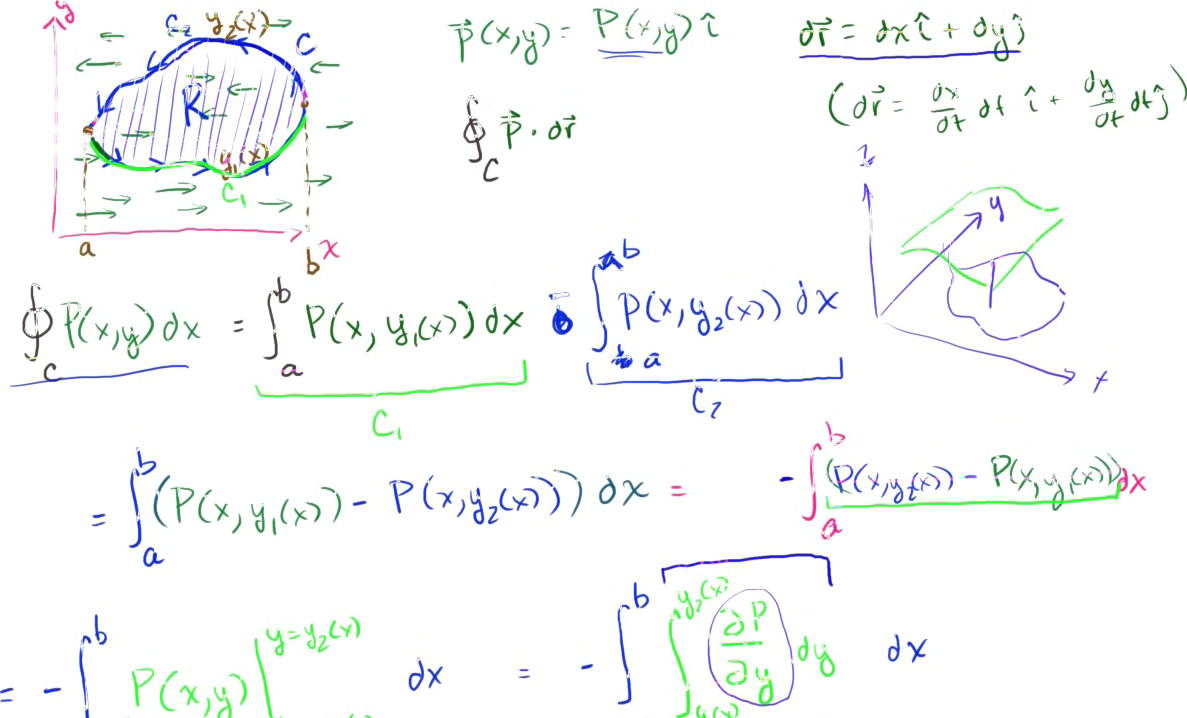 y
C₂ y₂(x) C
R
y₁(x)
C₁
a b x
P⃗(x,y) = P(x,y) î
dr⃗ = dx î + dy ĵ
(dr⃗ = dx/dt dt î + dy/dt dt ĵ)
∮_C P⃗ · dr⃗
z
y
x
∮_C P(x,y) dx = ∫_a^b P(x, y₁(x)) dx - ∫_a^b P(x, y₂(x)) dx
C₁ C₂
= ∫_a^b (P(x, y₁(x)) - P(x, y₂(x))) dx = - ∫_a^b (P(x, y₂(x)) - P(x, y₁(x))) dx
= - ∫^b P(x,y) |^{y=y₂(x)} dx = - ∫^b ∫^{y₂(x)} ∂P/∂y dy dx